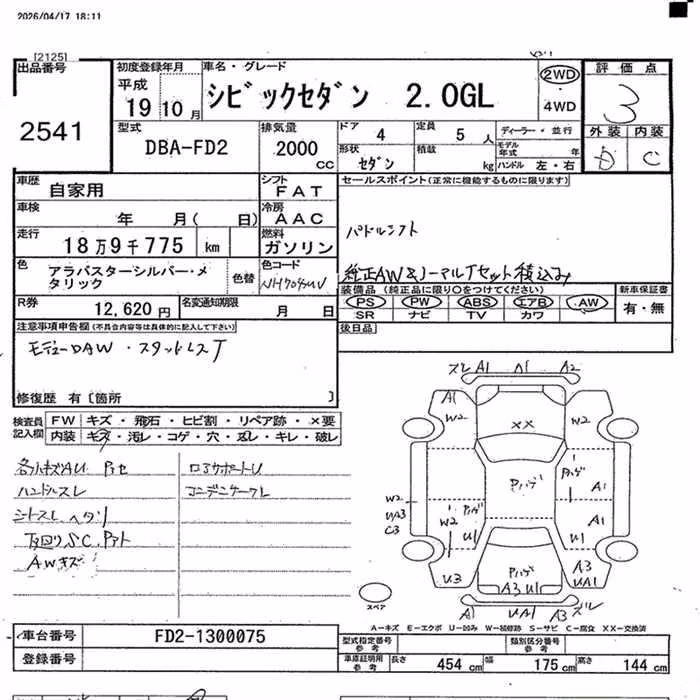 2026/04/17 18:11
[2125]
出品番号
2541
初度登録年月
平成
19 10 月
車名・グレード
シビックセダン 2.0GL
2WD
4WD
評価点
3
外装 内装
D C
型式
DBA-FD2
排気量
2000 CC
ドア 4
定員 5 人
形状 セダン
積載 kg
ディーラー・並行
モデル年式 年
ハンドル 左・右
車歴 自家用
シフト FAT
車検 年 月( 日)
冷房 AAC
走行 18万9千775 km
燃料 ガソリン
色 アラバスターシルバー・メタリック
色替
色コード
R券 12,620円
名変通知期限 月 日
セールスポイント(正常に機能するものに限ります)
パドルシフト
純正AW&ノーマルTセット積込み
装備品 (純正品に限り○をつけてください)
PS PW ABS エアB AW
SR ナビ TV カワ
新車保証書
有・無
後日品
注意事項申告欄(不具合内容等は具体的に記入して下さい)
モデューロAW・スタッドレスT
修復歴 有〔箇所 〕
検査員記入欄
FW キズ・飛石・ヒビ割・リペア跡・×要
内装 キズ・汚レ・コゲ・穴・スレ・キレ・破レ
各所キズAU
ロアサポートU
ハンドルスレ
コンデンサークレ
シートスレ ヘタリ
下回りSC
AWキズ
スレ A1 A1 A2
A1
W2
W2
XX
Pハゲ
Pハゲ
Pハゲ
A1
A1
W2
UA3
C3
W2
U1
U1
U3
Pハゲ
A3 U1
A3
UA1
A1 UA1 A3 スレ
スペア
A-キズ E-エクボ U-凹み W-補修跡 S-サビ C-腐食 XX-交換済
車台番号 FD2-1300075
登録番号
型式指定番号 参考
類別区分番号 参考
車庫証明用 参考
長さ 454 cm 幅 175 cm 高さ 144 cm